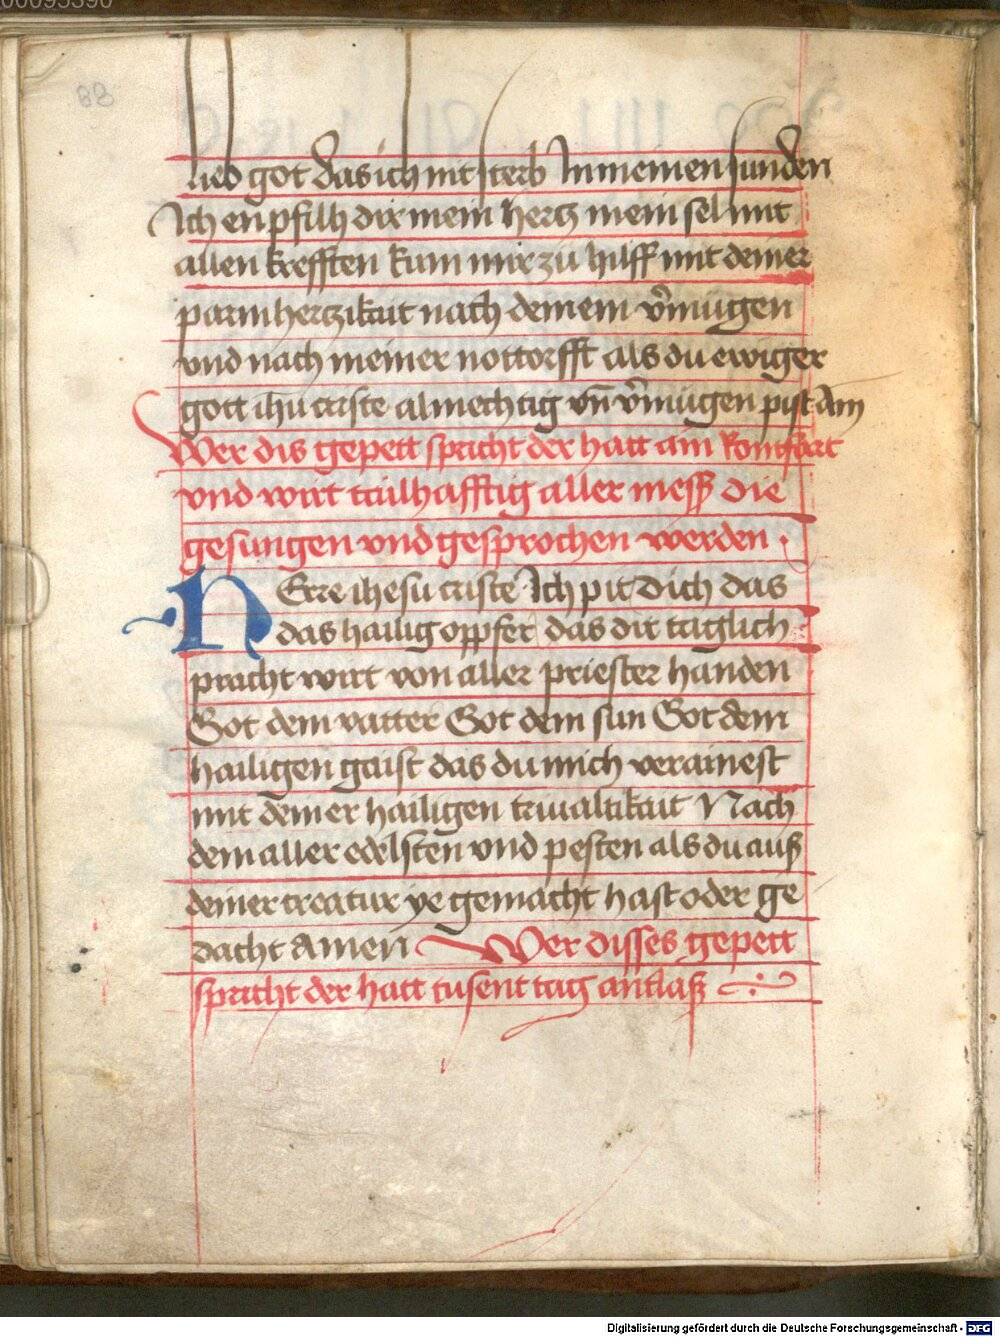 00095390
88
lieb got das ich nit sterb In meinen sunden
Ich enpfilh dir mein hertz mein sel mit
allen krefften kum mir zu hilff mit deiner
parmhertzikait nach deinem v̾mugen
vnd nach meiner nottorfft als du ewiger
gott ihu criste almechtig vn̄ v̾mügen pist Am
Wer dis gepett spricht der hatt ain
vnd wirt tailhafftig aller mess die
gesungen vnd gesprochen werden .
HErre ihesu criste Ich pit dich das
das hailig opffer das dir taglich
pracht wirt von aller priester handen
Got dem vatter Got dem sun Got dem
hailigen gaist das du mich verainest
mit deiner hailigen trivaltikait Nach
dem aller edelsten vnd pesten als du auß
deiner creatur ye gemacht hast oder ge
dacht Amen Wer disses gepett
spricht der hatt tusent tag antlaß
Digitalisierung gefördert durch die Deutsche Forschungsgemeinschaft - DFG